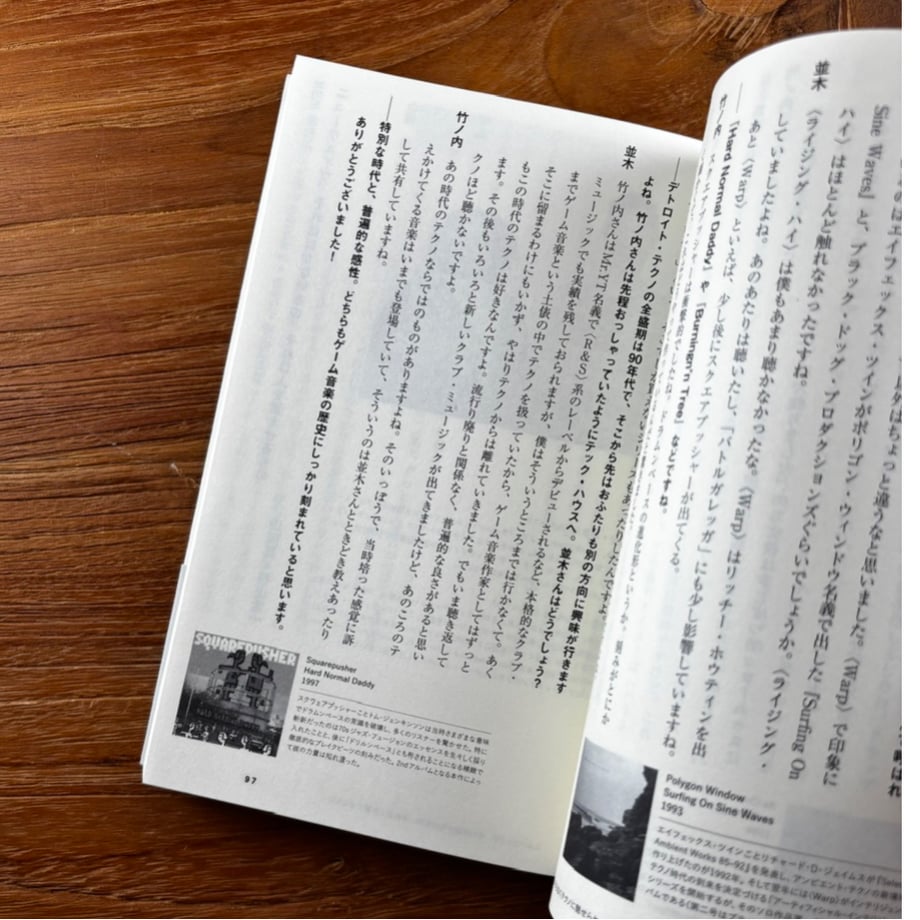 Sine Waves』と、ブラック・ドッグ・プロダクションズぐらいでしょうか。〈ライジング・
ハイ〉はほとんど触れなかったですね。
並木
〈ライジング・ハイ〉は僕もあまり聴かなかったな。〈Warp〉はリッチー・ホウティンを出
していましたよね。あのあたりは聴いたし、『バトルガレッガ』にも少し影響していますね。
あと〈Warp〉といえば、少し後にスクエアプッシャーが出てくる。
竹ノ内
『Hard Normal Daddy』や『Burningn'n Tree』などですね。
よね。竹ノ内さんは先程おっしゃっていたようにテック・ハウスへ。並木さんはどうでしょう?
――デトロイト・テクノの全盛期は90年代で、そこから先はおふたりも別の方向に興味が行きます
並木
竹ノ内さんはMr.YT名義で〈R&S〉系のレーベルからデビューされるなど、本格的なクラブ・
ミュージックでも実績を残しておられますが、僕はそういうところまでは行かなくて。あく
までゲーム音楽という土俵の中でテクノを扱っていたから、ゲーム音楽作家としてはずっと
そこに留まるわけにもいかず、やはりテクノからは離れていきました。でもいま聴き返して
もこの時代のテクノは好きなんですよ。流行り廃りと関係なく、普遍的な良さがあると思い
ます。その後もいろいろと新しいクラブ・ミュージックが出てきましたけど、あのころのテ
クノほど聴かないですよ。
竹ノ内
あの時代のテクノならではのものがありますよね。そのいっぽうで、当時培った感覚に訴
えかけてくる音楽はいまでも登場していて、そういうのは並木さんとときどき教えあったり
して共有していますね。
――特別な時代と、普遍的な感性。どちらもゲーム音楽の歴史にしっかり刻まれていると思います。
ありがとうございました!
SQUAREPUSHER
Squarepusher
Hard Normal Daddy
1997
スクウェアプッシャーことトム・ジェンキンソンは当時さまざまな意味
でドラムンベースの常識を破壊し、多くのリスナーを驚かせた。特に
斬新だったのは70sジャズ・フュージョンのエッセンスを生々しく採り
入れたことと、後に「ドリルンベース」とも称されることになる極端で
徹底的なブレイクビーツの刻みだった。2ndアルバムとなる本作によっ
て彼の力量は知れ渡った。
97
Polygon Window
Surfing On Sine Waves
1993
エイフェックス・ツインことリチャード・D・ジェイムスが『Selec
Ambient Works 85-92』を発表し、アンビエント・テクノの新
作り上げたのが1992年。そして翌年には〈Warp〉がインテリジェン
テクノ時代の到来を決定づける『アーティフィシ
シリーズを開始するが、そのソロ作